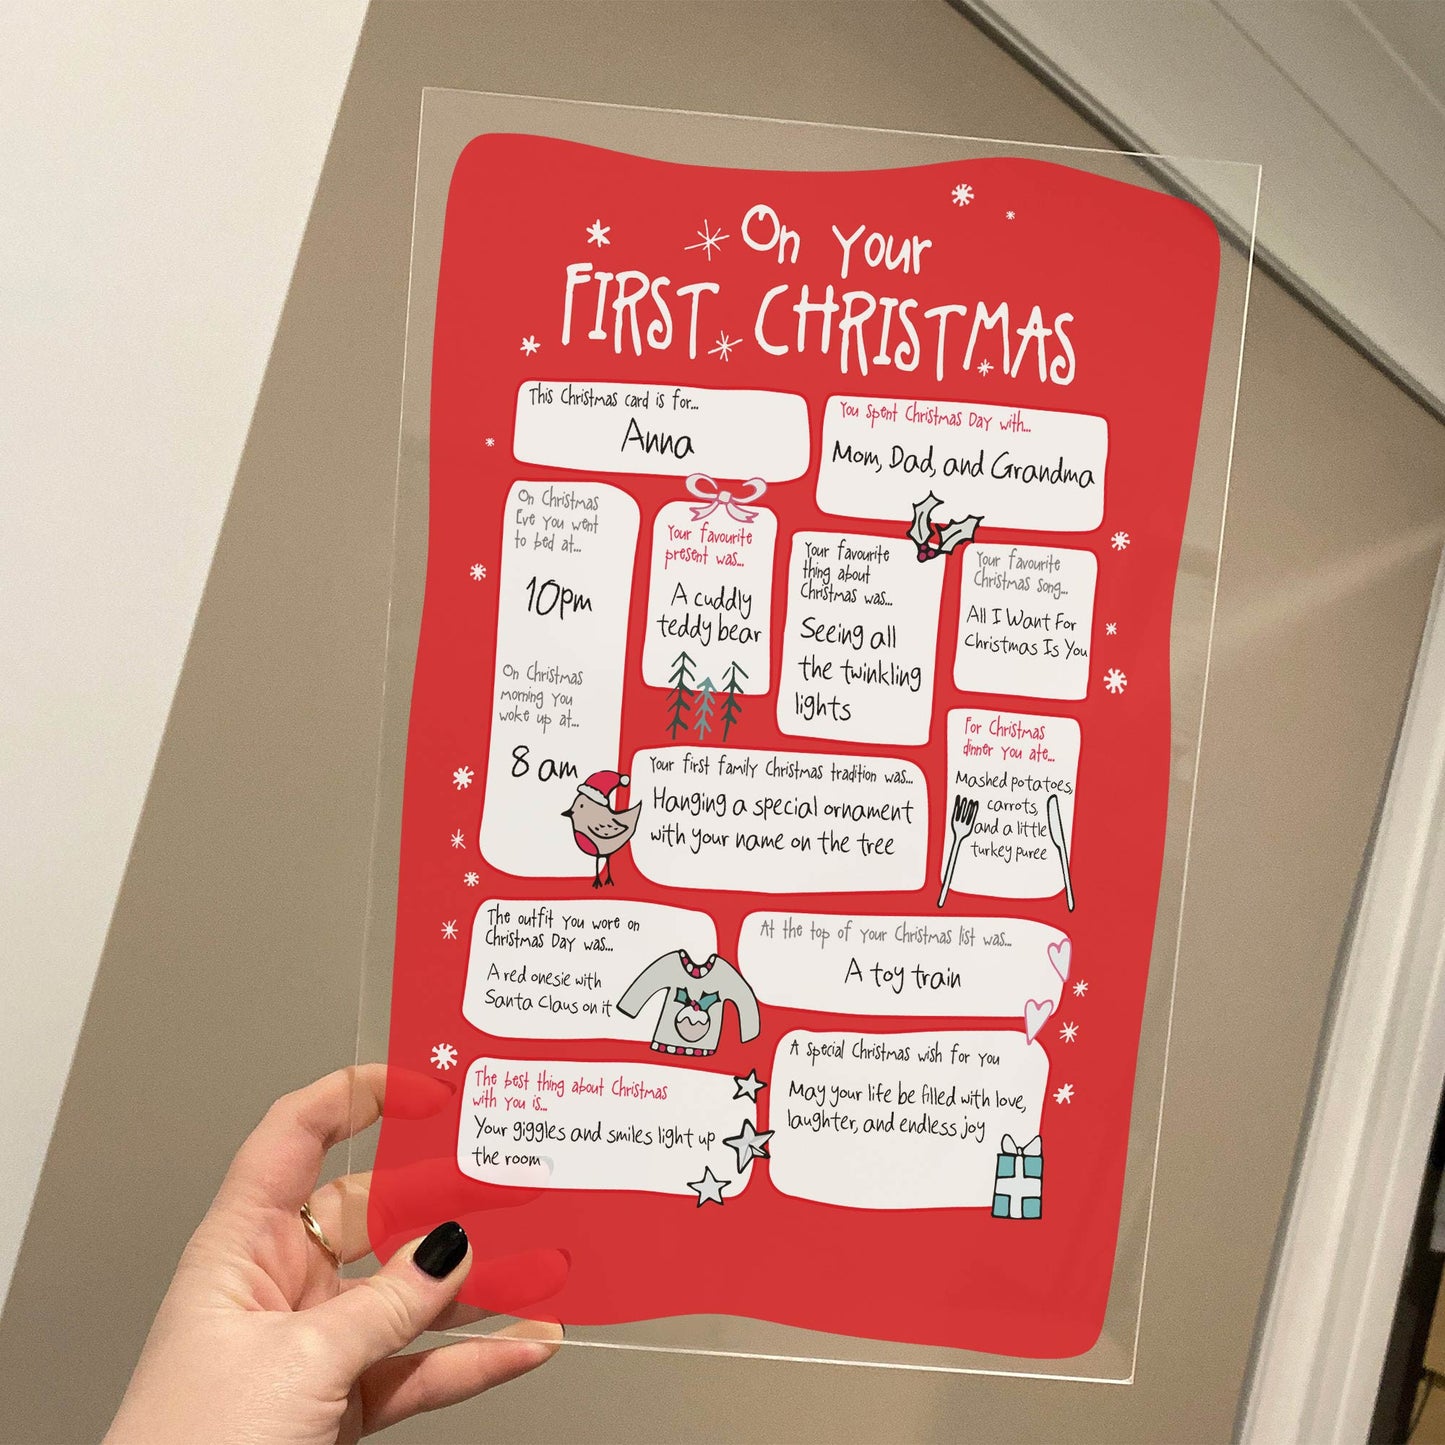 On Your
FIRST CHRISTMAS
This Christmas card is for...
Anna
You spent Christmas Day with...
Mom, Dad, and Grandma
On Christmas
Eve you went
to bed at...
10pm
On Christmas
morning you
woke up at...
8 am
Your favourite
present was...
A cuddly
teddy bear
Your favourite
thing about
Christmas was...
Seeing all
the twinkling
lights
Your favourite
Christmas song...
All I Want For
Christmas Is You
For Christmas
dinner you ate...
Mashed potatoes,
carrots,
and a little
turkey puree
Your first family Christmas tradition was...
Hanging a special ornament
with your name on the tree
The outfit you wore on
Christmas Day was...
A red onesie with
Santa Claus on it
At the top of your Christmas list was...
A toy train
The best thing about Christmas
with you is...
Your giggles and smiles light up
the room
A special Christmas wish for you
May your life be filled with love,
laughter, and endless joy